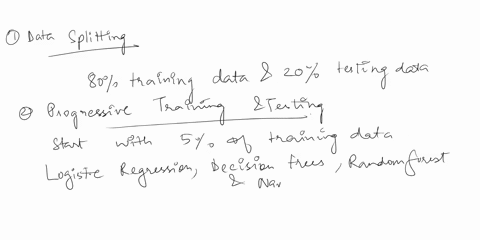 ① Data Splitting
80% training data & 20% testing data
② Progressive Training & Testing
Start with 5% of training data
Logistic Regression, Decision Trees, Random Forest
& Nav